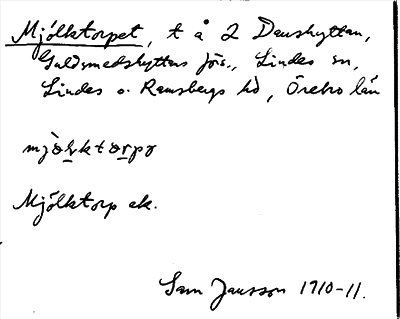 Mjölktorpet, t å 2 Danshyttan,
Guldsmedshyttans förs., Lindes sn,
Lindes o. Ramsbergs hd, Örebro län
mjòlktorpə
Mjölktorp ek.
Sam Jansson 1910-11.